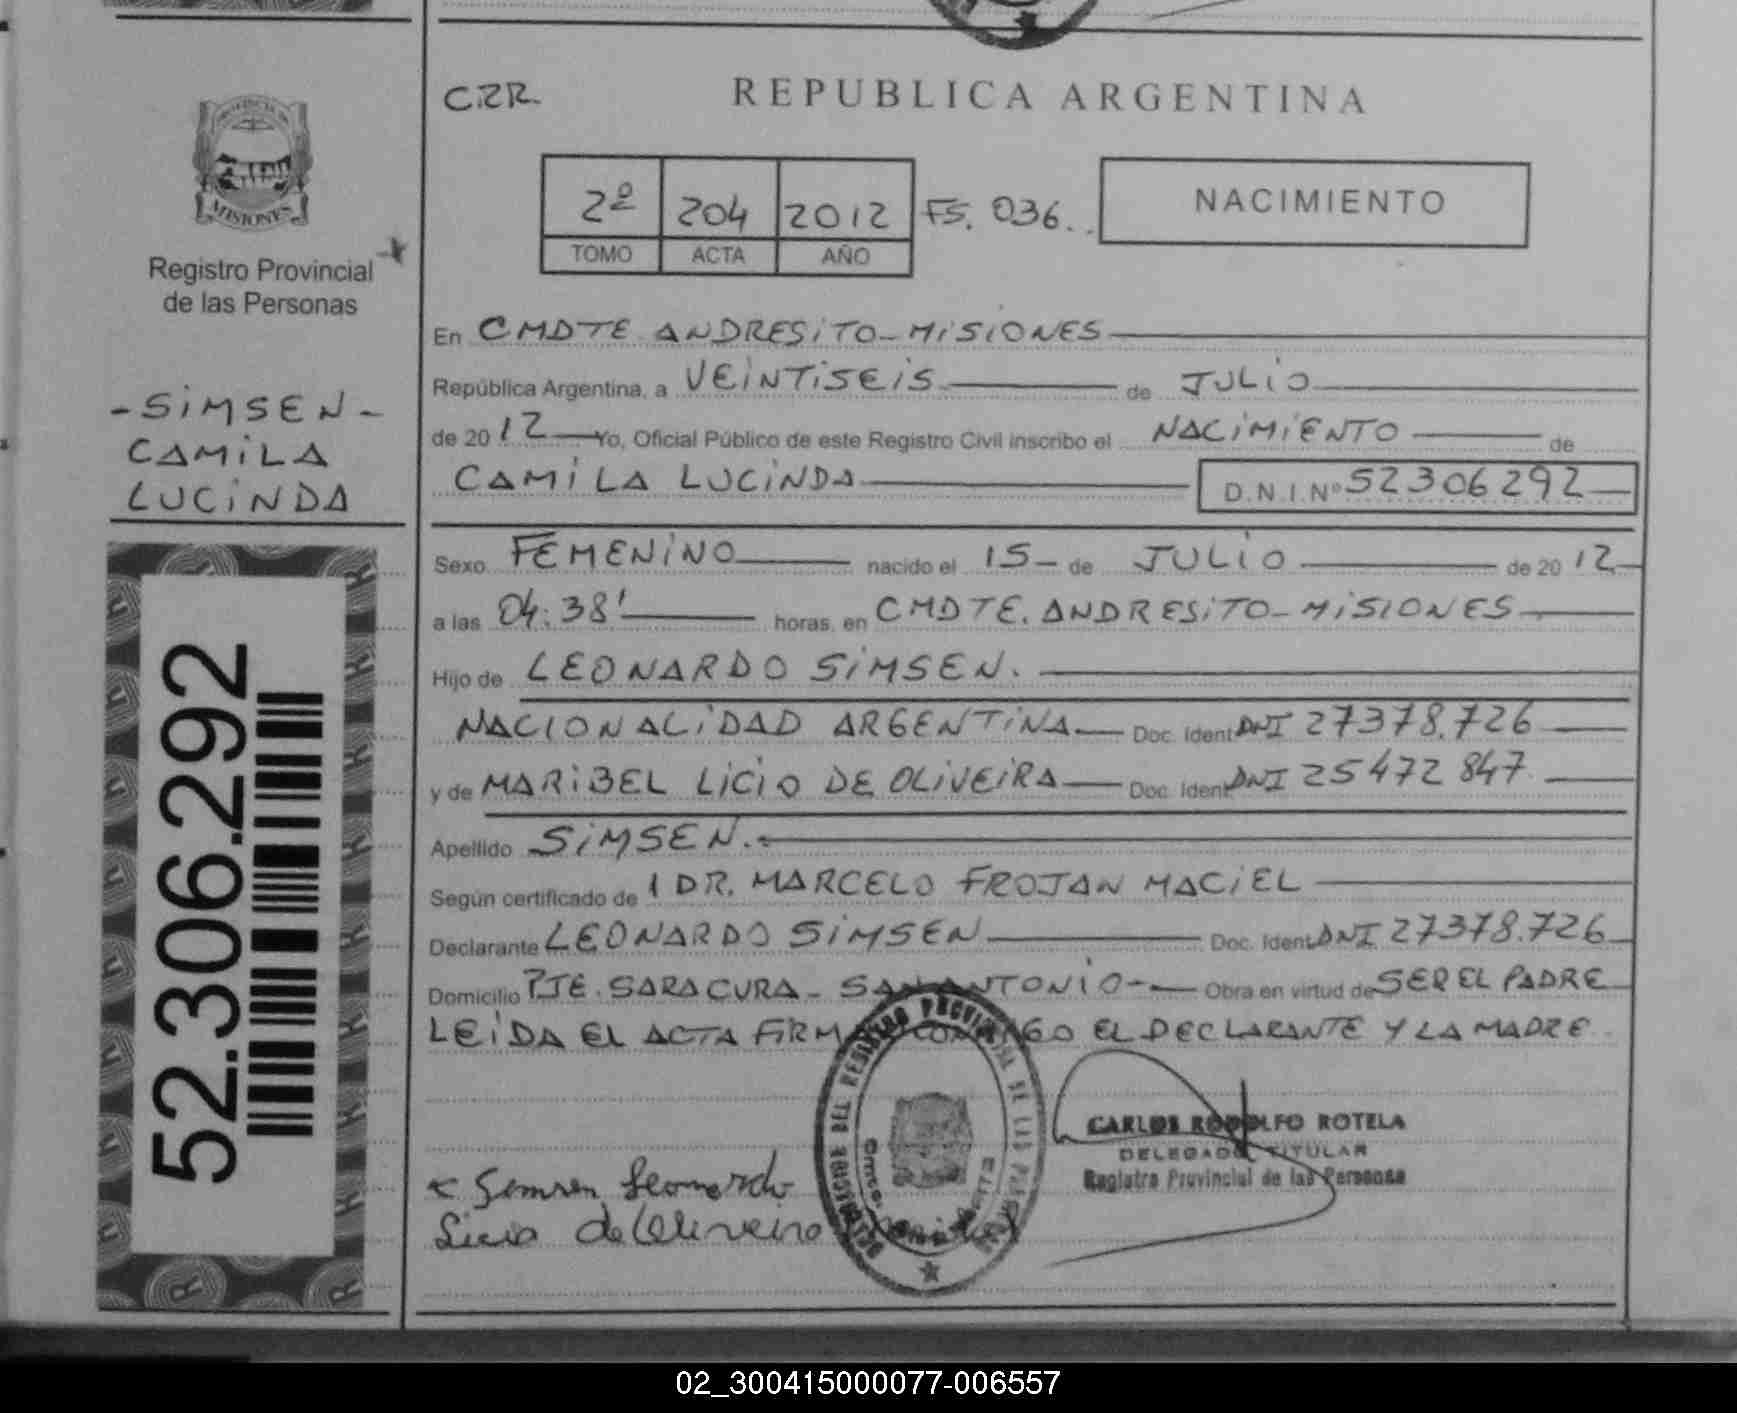 CRR.
REPUBLICA ARGENTINA
2º 204 2012 FS. 036..
TOMO ACTA AÑO
NACIMIENTO
MISIONES
Registro Provincial
de las Personas
-SIMSEN-
CAMILA
LUCINDA
52.306.292
En CMDTE ANDRESITO-MISIONES
República Argentina, a VEINTISEIS de JULIO
de 2012 Yo, Oficial Público de este Registro Civil inscribo el NACIMIENTO de
CAMILA LUCINDA D.N.I.Nº 52306292
Sexo FEMENINO nacido el 15 de JULIO de 2012
a las 04:38' horas, en CMDTE. ANDRESITO-MISIONES
Hijo de LEONARDO SIMSEN.
NACIONALIDAD ARGENTINA Doc. Ident DNI 27378.726
y de MARIBEL LICIO DE OLIVEIRA Doc. Ident DNI 25472847
Apellido SIMSEN.
Según certificado de 1 DR. MARCELO FROJAN MACIEL
Declarante LEONARDO SIMSEN Doc. Ident DNI 27378.726
Domicilio PJE. SARACURA - SAN ANTONIO Obra en virtud de SER EL PADRE
LEIDA EL ACTA FIRMAN CONMIGO EL DECLARANTE Y LA MADRE
CARLOS RODOLFO ROTELA
DELEGADO TITULAR
Registro Provincial de las Personas
Simsen Leonardo
Licio de Oliveira
02_300415000077-006557